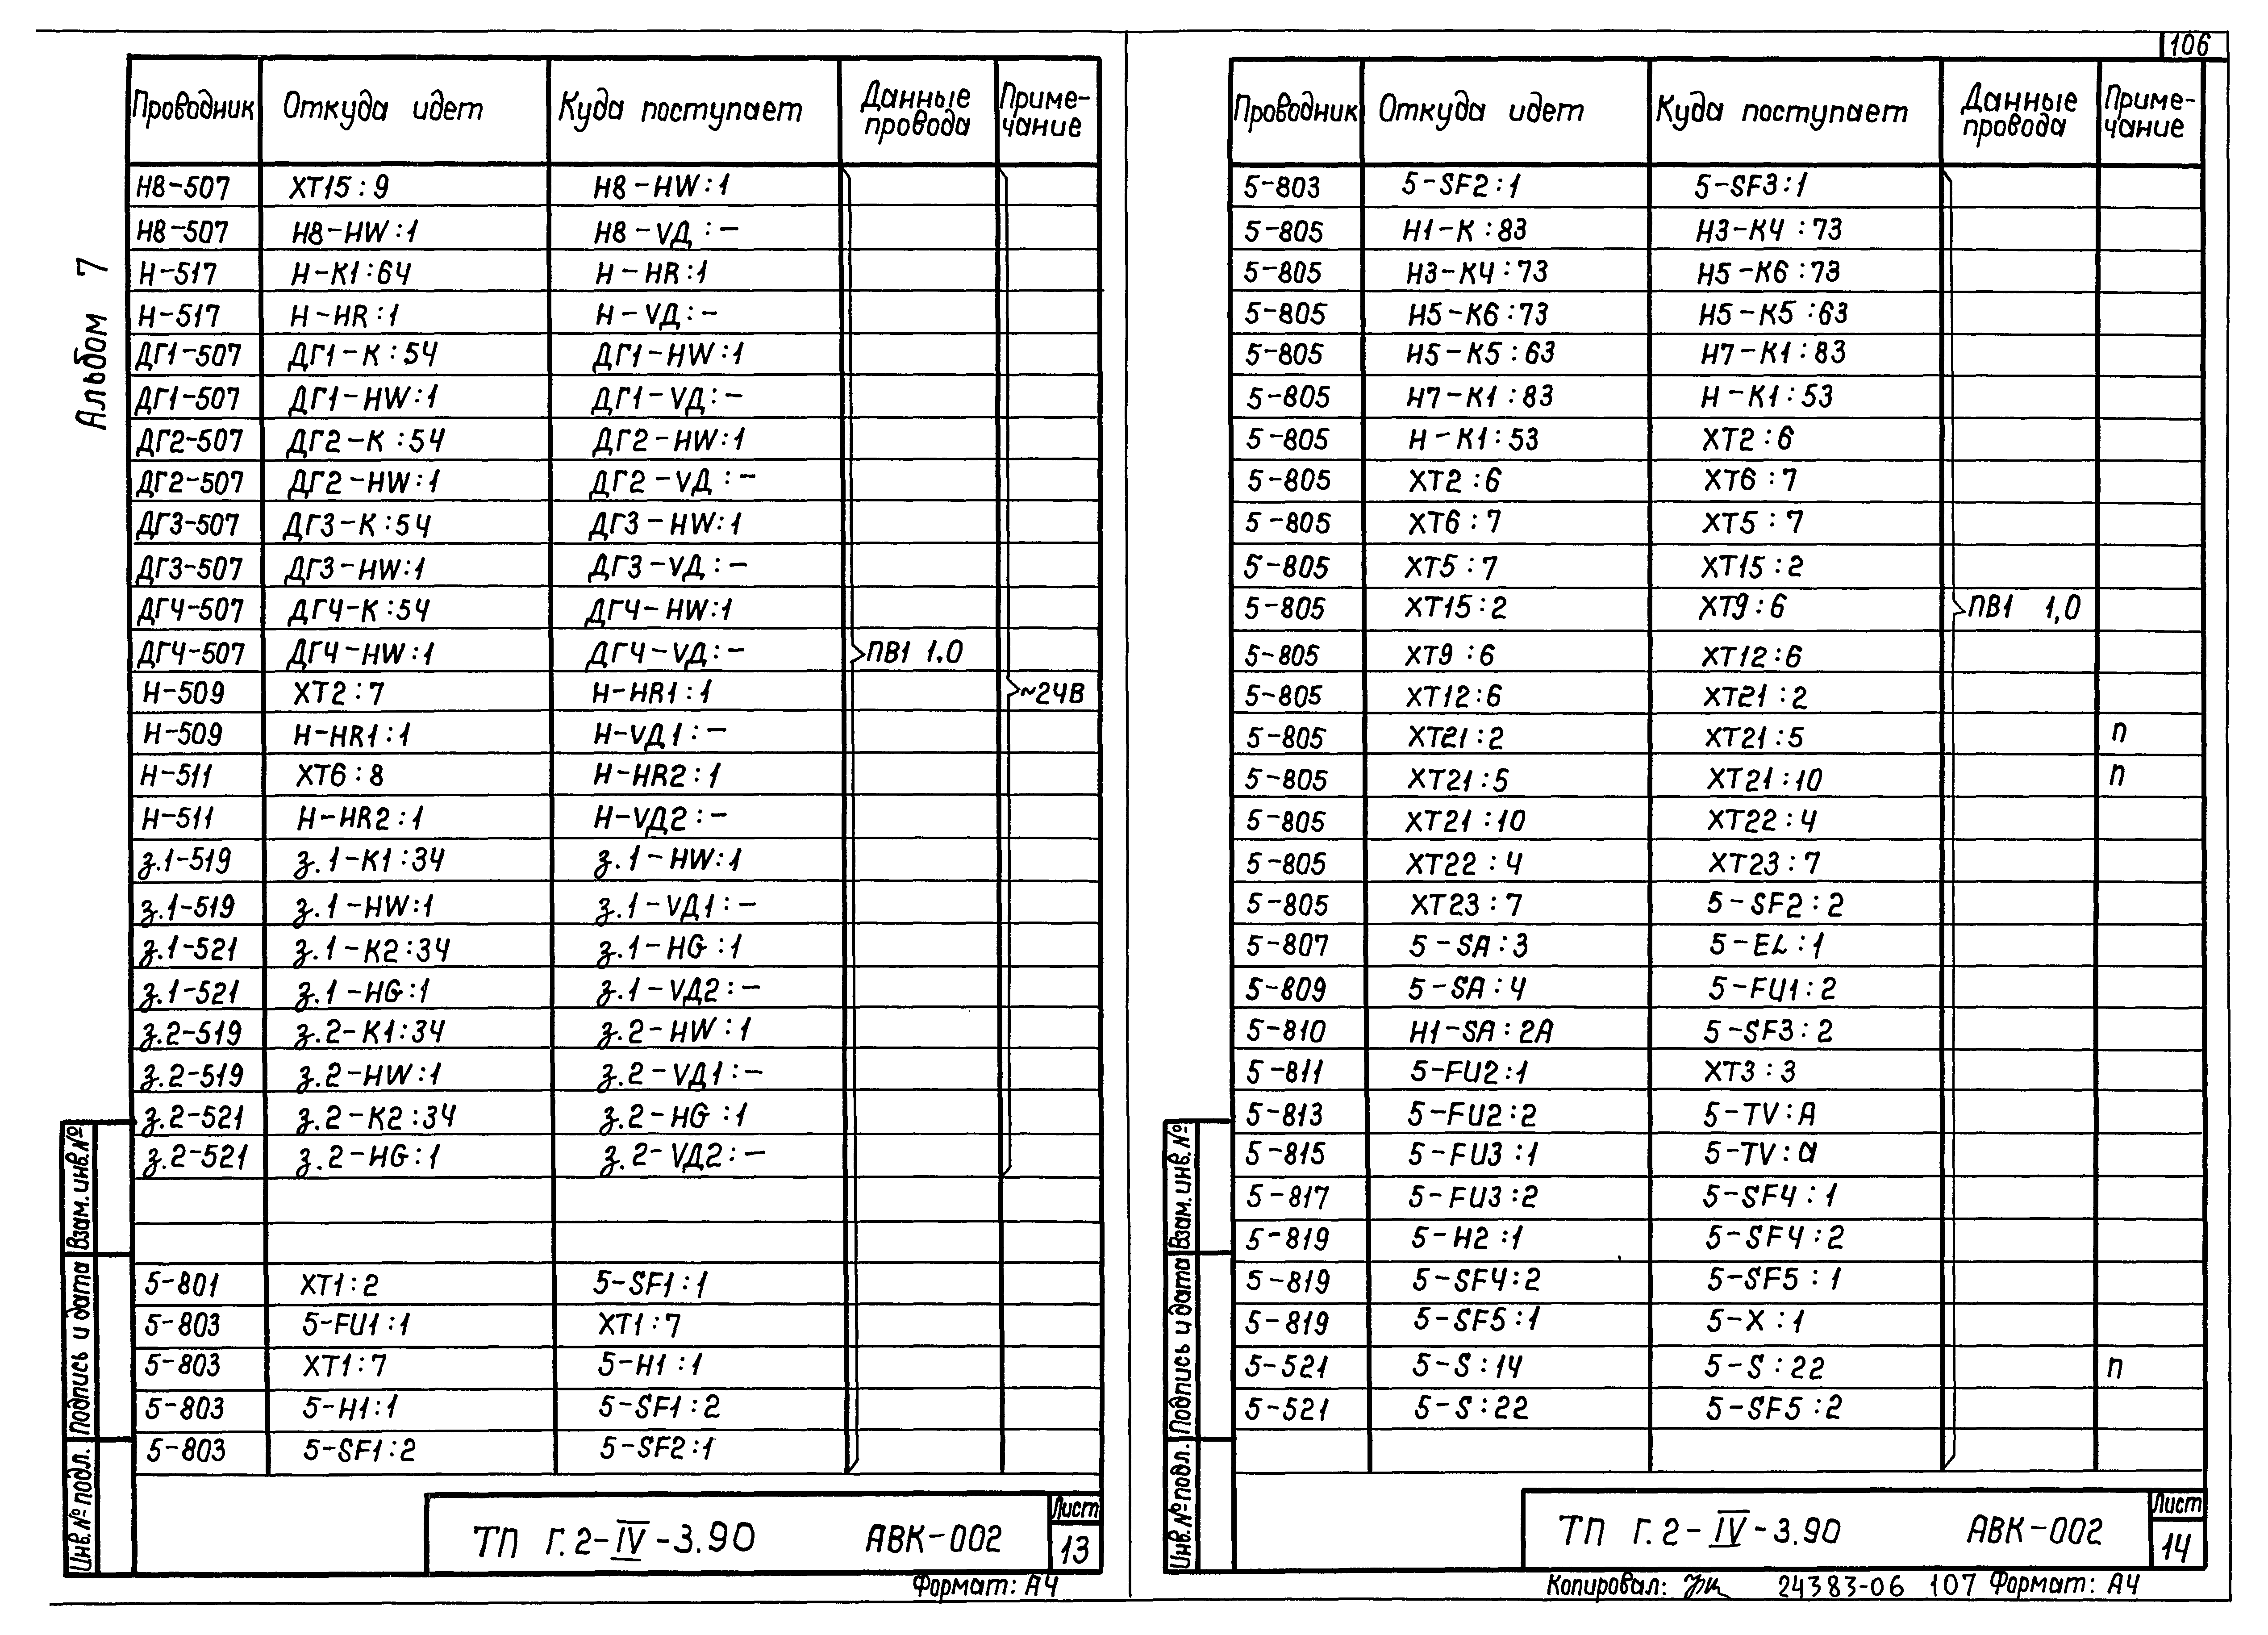 106
Альбом 7
Проводник Откуда идет Куда поступает Данные провода Приме-чание
Н8-507 ХТ15:9 Н8-HW:1
Н8-507 Н8-HW:1 Н8-VД:-
Н-517 Н-К1:64 Н-HR:1
Н-517 Н-HR:1 Н-VД:-
ДГ1-507 ДГ1-К:54 ДГ1-HW:1
ДГ1-507 ДГ1-HW:1 ДГ1-VД:-
ДГ2-507 ДГ2-К:54 ДГ2-HW:1
ДГ2-507 ДГ2-HW:1 ДГ2-VД:-
ДГ3-507 ДГ3-К:54 ДГ3-HW:1
ДГ3-507 ДГ3-HW:1 ДГ3-VД:-
ДГ4-507 ДГ4-К:54 ДГ4-HW:1
ДГ4-507 ДГ4-HW:1 ДГ4-VД:- ПВ1 1.0
Н-509 ХТ2:7 Н-HR1:1 ~24В
Н-509 Н-HR1:1 Н-VД1:-
Н-511 ХТ6:8 Н-HR2:1
Н-511 Н-HR2:1 Н-VД2:-
з.1-519 з.1-К1:34 з.1-HW:1
з.1-519 з.1-HW:1 з.1-VД1:-
з.1-521 з.1-К2:34 з.1-HG:1
з.1-521 з.1-HG:1 з.1-VД2:-
з.2-519 з.2-К1:34 з.2-HW:1
з.2-519 з.2-HW:1 з.2-VД1:-
з.2-521 з.2-К2:34 з.2-HG:1
з.2-521 з.2-HG:1 з.2-VД2:-
5-801 ХТ1:2 5-SF1:1
5-803 5-FU1:1 ХТ1:7
5-803 ХТ1:7 5-Н1:1
5-803 5-Н1:1 5-SF1:2
5-803 5-SF1:2 5-SF2:1
Инв.№ подл. Подпись и дата Взам.инв.№
ТП Г.2-IV-3.90 АВК-002 Лист 13
Формат: А4
Проводник Откуда идет Куда поступает Данные провода Приме-чание
5-803 5-SF2:1 5-SF3:1
5-805 Н1-К:83 Н3-К4:73
5-805 Н3-К4:73 Н5-К6:73
5-805 Н5-К6:73 Н5-К5:63
5-805 Н5-К5:63 Н7-К1:83
5-805 Н7-К1:83 Н-К1:53
5-805 Н-К1:53 ХТ2:6
5-805 ХТ2:6 ХТ6:7
5-805 ХТ6:7 ХТ5:7
5-805 ХТ5:7 ХТ15:2
5-805 ХТ15:2 ХТ9:6 ПВ1 1,0
5-805 ХТ9:6 ХТ12:6
5-805 ХТ12:6 ХТ21:2
5-805 ХТ21:2 ХТ21:5 п
5-805 ХТ21:5 ХТ21:10 п
5-805 ХТ21:10 ХТ22:4
5-805 ХТ22:4 ХТ23:7
5-805 ХТ23:7 5-SF2:2
5-807 5-SA:3 5-EL:1
5-809 5-SA:4 5-FU1:2
5-810 Н1-SA:2A 5-SF3:2
5-811 5-FU2:1 ХТ3:3
5-813 5-FU2:2 5-TV:A
5-815 5-FU3:1 5-TV:a
5-817 5-FU3:2 5-SF4:1
5-819 5-Н2:1 5-SF4:2
5-819 5-SF4:2 5-SF5:1
5-819 5-SF5:1 5-Х:1
5-521 5-S:14 5-S:22 п
5-521 5-S:22 5-SF5:2
Инв.№ подл. Подпись и дата Взам.инв.№
ТП Г.2-IV-3.90 АВК-002 Лист 14
Копировал: 24383-06 107 Формат: А4